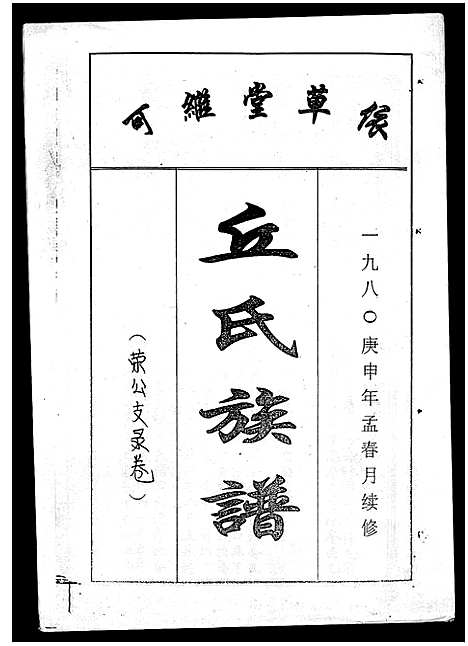 张草堂維何
一九八〇庚申年孟春月续修
丘氏族譜
（荥公支录卷）